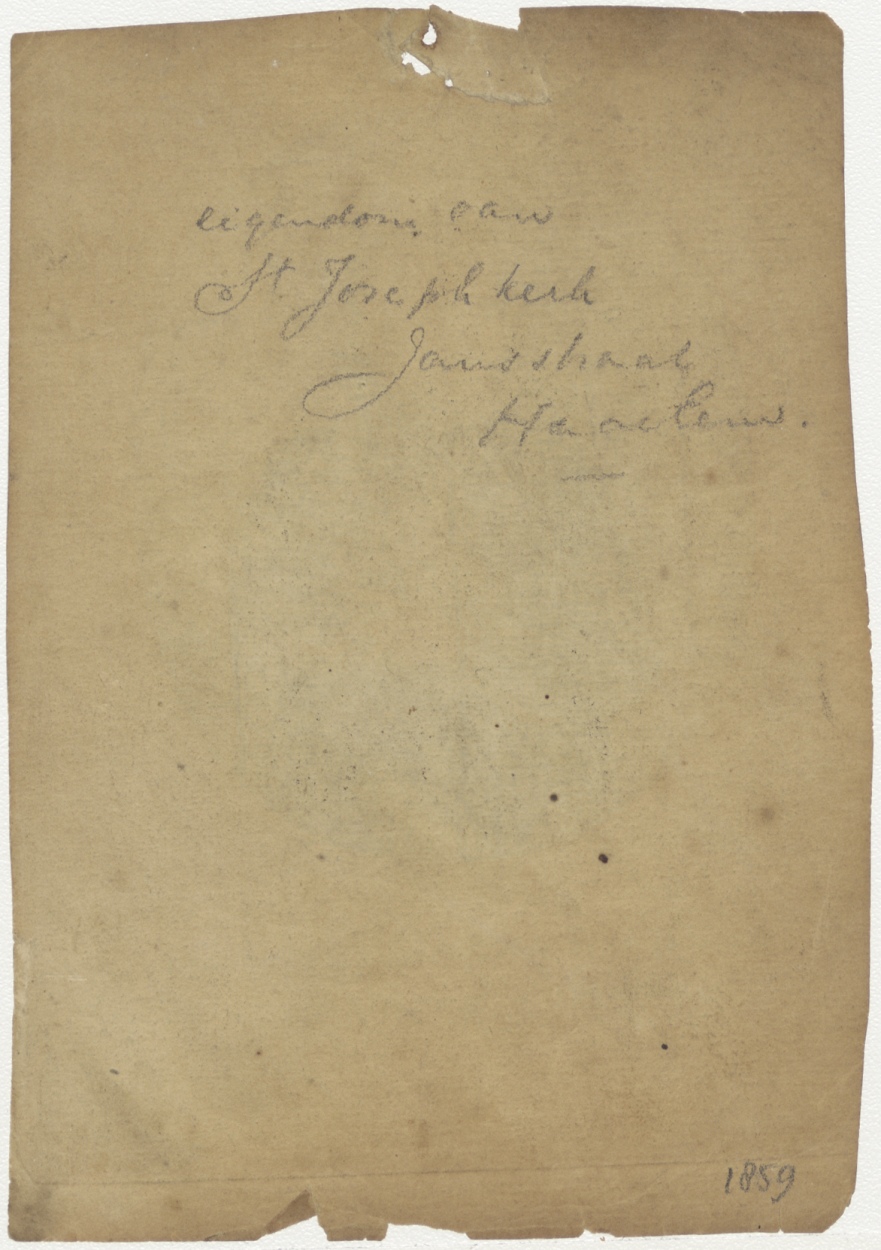 eigendom van
St. Joseph kerk
Jansstraat
Haarlem.
1859